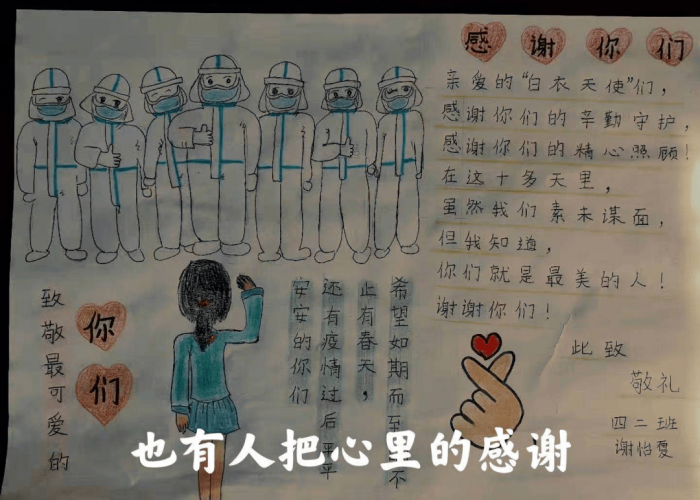 感谢你们
亲爱的“白衣天使”们，
感谢你们的辛勤守护，
感谢你们的精心照顾！
在这十多天里，
虽然我们素未谋面，
但我知道，
你们就是最美的人！
谢谢你们！
此致
敬礼
四二班
谢怡夏
致敬最可爱的
你们
希望如期而至的不
止有春天，
还有疫情过后平平
安安的你们
也有人把心里的感谢